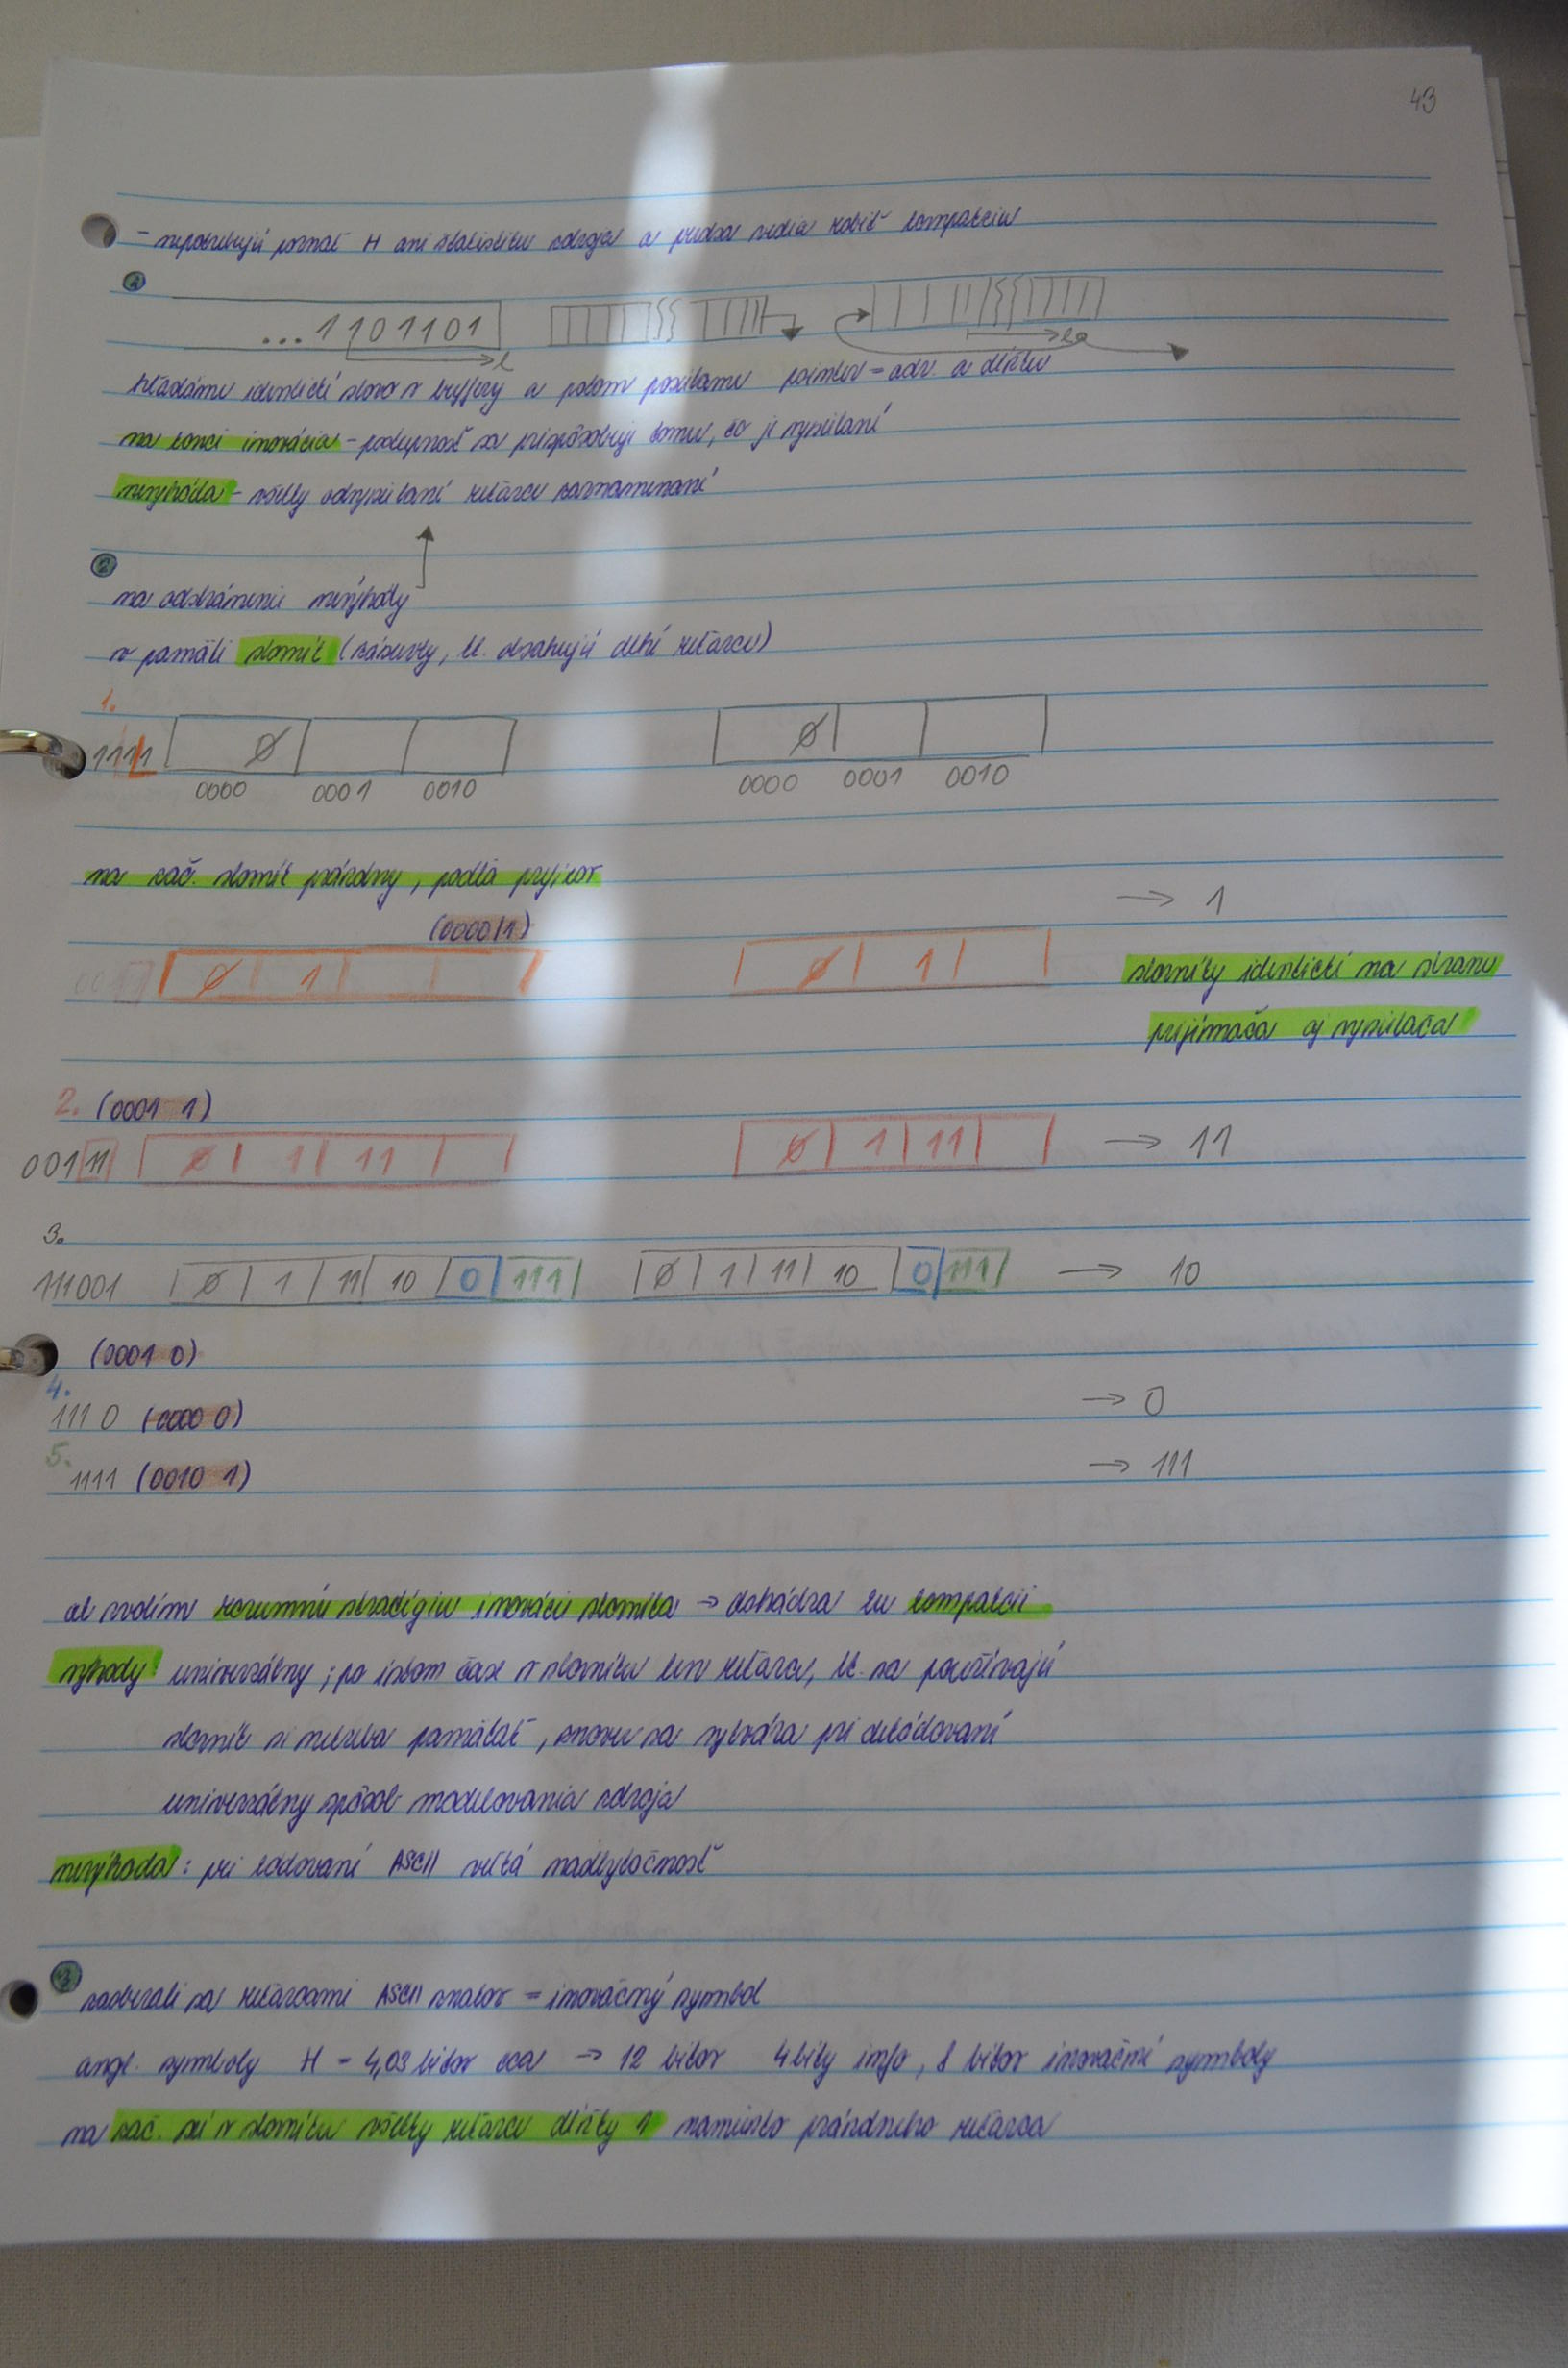 43
- nepotrebujú poznať H ani štatistiku zdroja a predsa vedia robiť kompakciu
1
...1101101
l
hľadáme identické slovo v bufferi a potom posielame pointer = adr. a dĺžku
na konci inovácia - postupnosť sa prispôsobuje tomu, čo je vysielané
nevýhoda - všetky odvysielané reťazce zaznamenané
2
na odstránenie nevýhody
v pamäti slovník (zásuvky, kt. obsahujú dlhé reťazce)
1.
1111 ∅ ∅
0000 0001 0010 0000 0001 0010
na zač. slovník prázdny, podľa
→ 1
(0000/1)
∅ 1 ∅ 1 slovníky identické na strane
prijímača aj vysielača
2. (0001 1)
00111 ∅ 1 11 ∅ 1 11 → 11
3.
111001 ∅ 1 11 10 0 111 ∅ 1 11 10 0 111 → 10
(0001 0)
4.
111 0 (0000 0) → 0
5.
1111 (0010 1) → 111
ak zvolím rozumnú stratégiu inovácie slovníka → dochádza ku kompakcii
výhody: univerzálny; po istom čase v slovníku len reťazce, kt. sa používajú
slovník si netreba pamätať, znovu sa vytvára pri dekódovaní
univerzálny spôsob modelovania zdroja
nevýhoda: pri kódovaní ASCII veľká nadbytočnosť
3
zaoberali sa reťazcami ASCII znakov = inovačný symbol
angl. symboly H - 4,03 bitov cca → 12 bitov 4 bity info, 8 bitov inovačné symboly
na zač. sú v slovníku všetky reťazce dĺžky 1 namiesto prázdneho reťazca